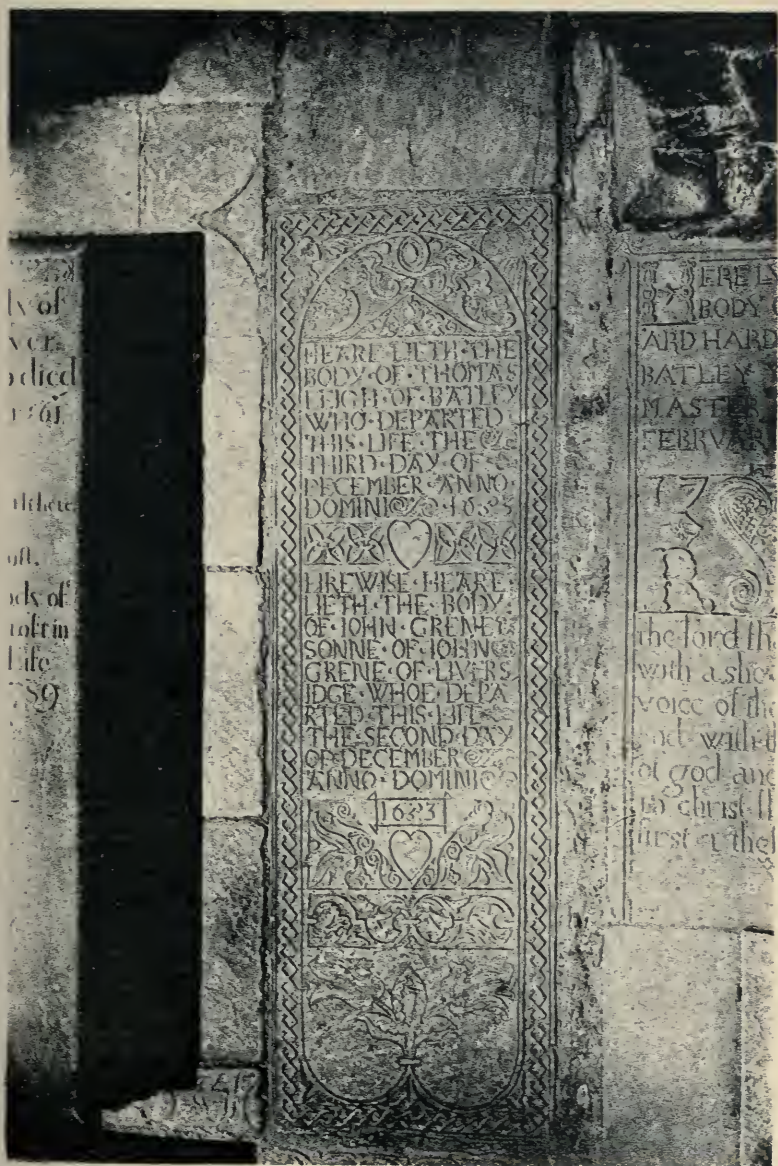 HEARE·LIETH·THE
BODY·OF·THOMAS
LEIGH·OF·BATLEY
WHO·DEPARTED
THIS·LIFE·THE
THIRD·DAY·OF
DECEMBER·ANNO
DOMINI
LIKEWISE·HEARE
LIETH·THE·BODY
OF·IOHN·GRENE
SONNE·OF·IOHN
GRENE·OF·LIVERS
IDGE·WHOE·DEPA
RTED·THIS·LIFE
THE·SECOND·DAY
OF·DECEMBER
ANNO·DOMINI
ly of
ver
died
ds of
Life
HERE L
BODY
ARD HARD
BATLEY
MASTER
FEBRVAR
the lord th
with a sho
voice of the
of god and
in christ
first